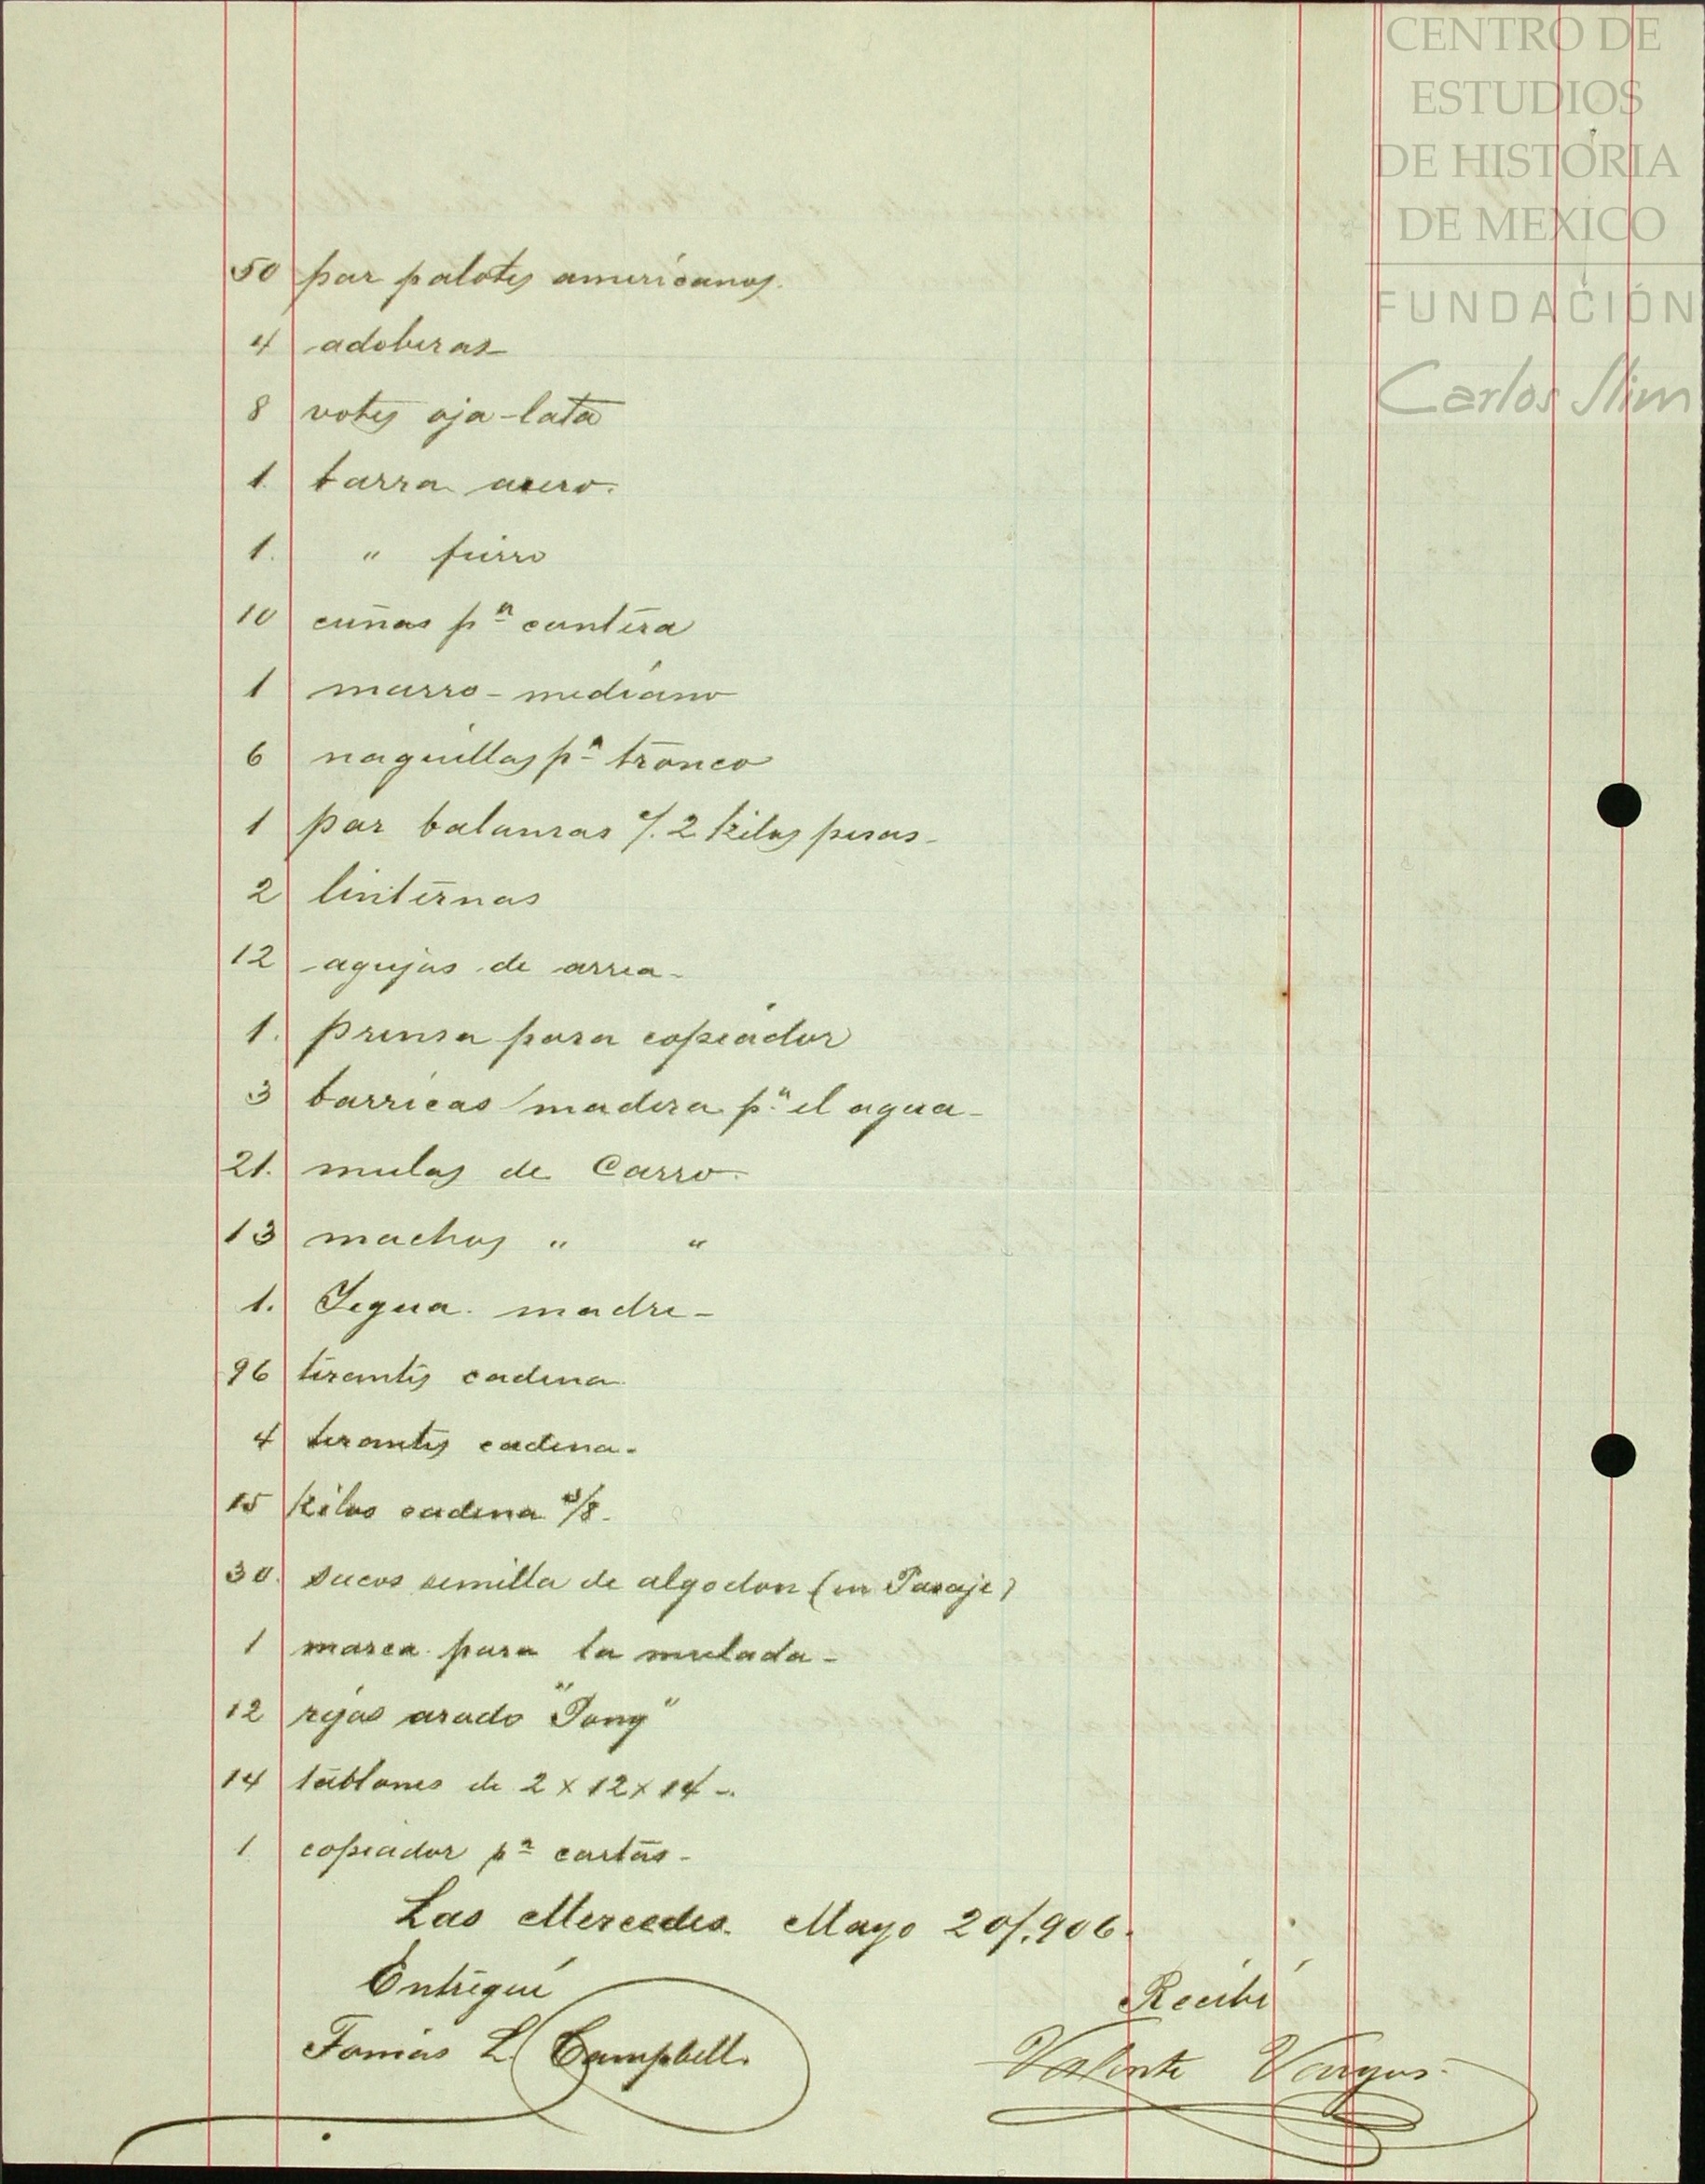 CENTRO DE
ESTUDIOS
DE HISTORIA
DE MEXICO
FUNDACIÓN
Carlos Slim
50 par palotes americanos.
4 adoberas
8 votes oja-lata
1. barra acero.
1. " fierro
10 cuñas pª cantera
1 marro-mediano
6 naguillas pª tronco
1 par balansas c/. 2 kilos pesas-
2 linternas
12 agujas de arrea-
1. prensa para copiador
3 barricas madera pª el agua-
21. mulas de Carro.
13 machos " "
1. Yegua. madre-
96 tirantes cadena
4 tirantes cadena-
15 kilos cadena 3/8-
30. sacos semilla de algodon (en Pasaje)
1 marca para la mulada-
12 rejas arado "Pony"
14 tablones de 2 x 12 x 14-.
1 copiador pª cartas-
Las Mercedes. Mayo 20/.906.
Entregué
Recibí
Tomás L. Campbell.
Valente Vargas.